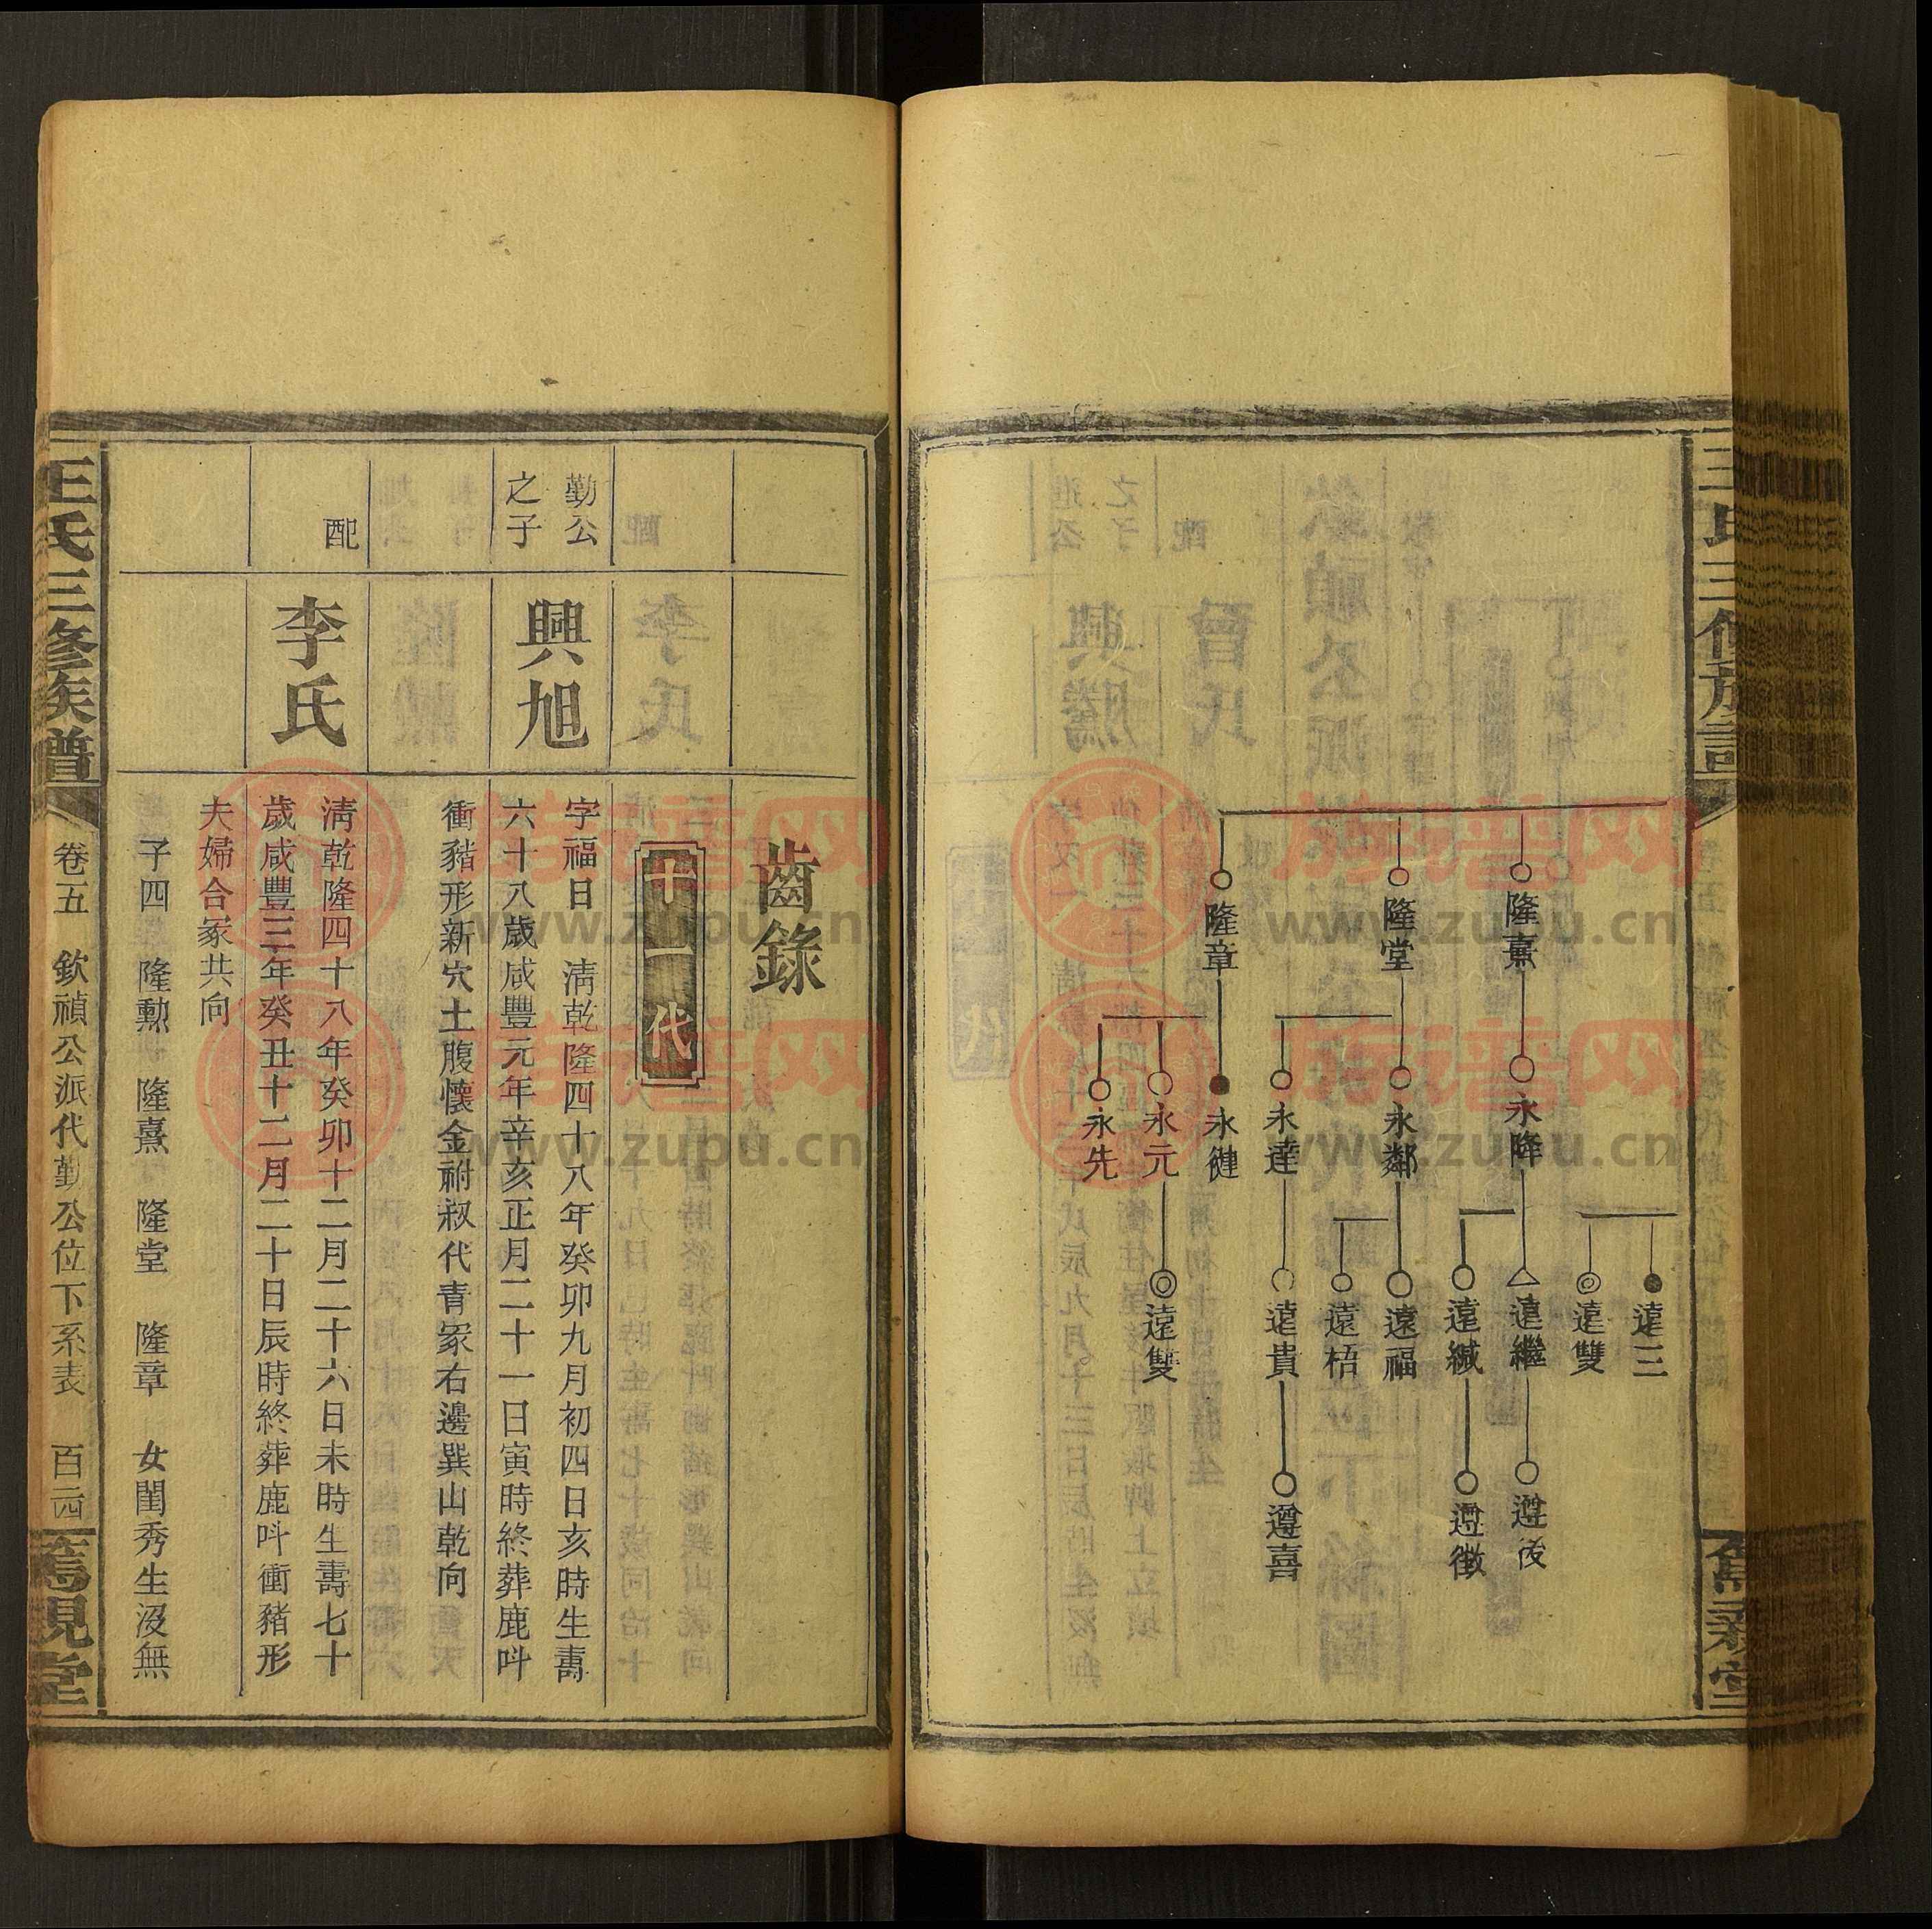 王氏三修族譜
隆熹
隆堂
隆章
永隆
永鄰
永達
永健
永元
永先
遠三
遠雙
遠繼
遠緘
遠福
遠梧
遠貴
遠雙
遵後
遵徵
遵喜
齒錄
十一代
勤公之子
興旭
字福日 淸乾隆四十八年癸卯九月初四日亥時生壽
六十八歲咸豐元年辛亥正月二十一日寅時終葬鹿呌
衝豬形新穴土腹懷金祔叔代青冢右邊巽山乾向
配
李氏
淸乾隆四十八年癸卯十二月二十六日未時生壽七十
歲咸豐三年癸丑十二月二十日辰時終葬鹿呌衝豬形
夫婦合冢共向
子四 隆勳 隆熹 隆堂 隆章 女閨秀生沒無
王氏三修族譜
卷五 欽禎公派代勤公位下系表
族谱网
www.zupu.cn
族谱网
www.zupu.cn
族谱网
www.zupu.cn
族谱网
www.zupu.cn